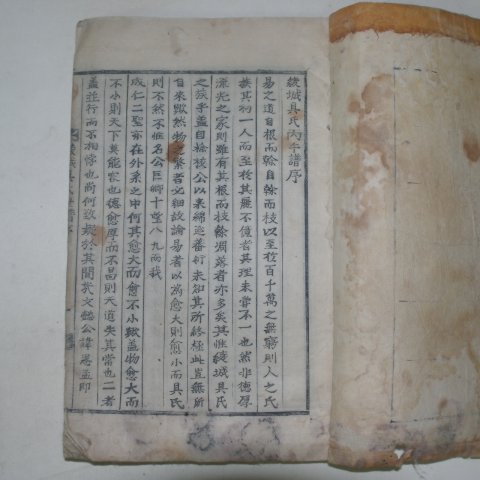 綾城具氏丙午譜序
易之道自根而榦自榦而枝以至於百千萬之無窮則人之氏
族其初一人而至於其麗不億者其理未嘗不一也然非德厚
流光之家則雖有其根而枝榦凋落者亦多矣其惟綾城具氏
之族乎盖自始公以來綿遠蕃衍未知其所終極此豈無所
自來歟然物之繁者必細故論易者以為愈大則愈小而具氏
則不然不惟名公巨卿十堂八九而我
成仁二聖亦在外系之中何其愈大而愈不小歟盖物愈大而
不小則天下莫能容也德愈厚而不昌則天道失其當也二者
盖並行而不相悖也尚何致疑於其間哉文懿公諱 孟即
綾城具氏譜序